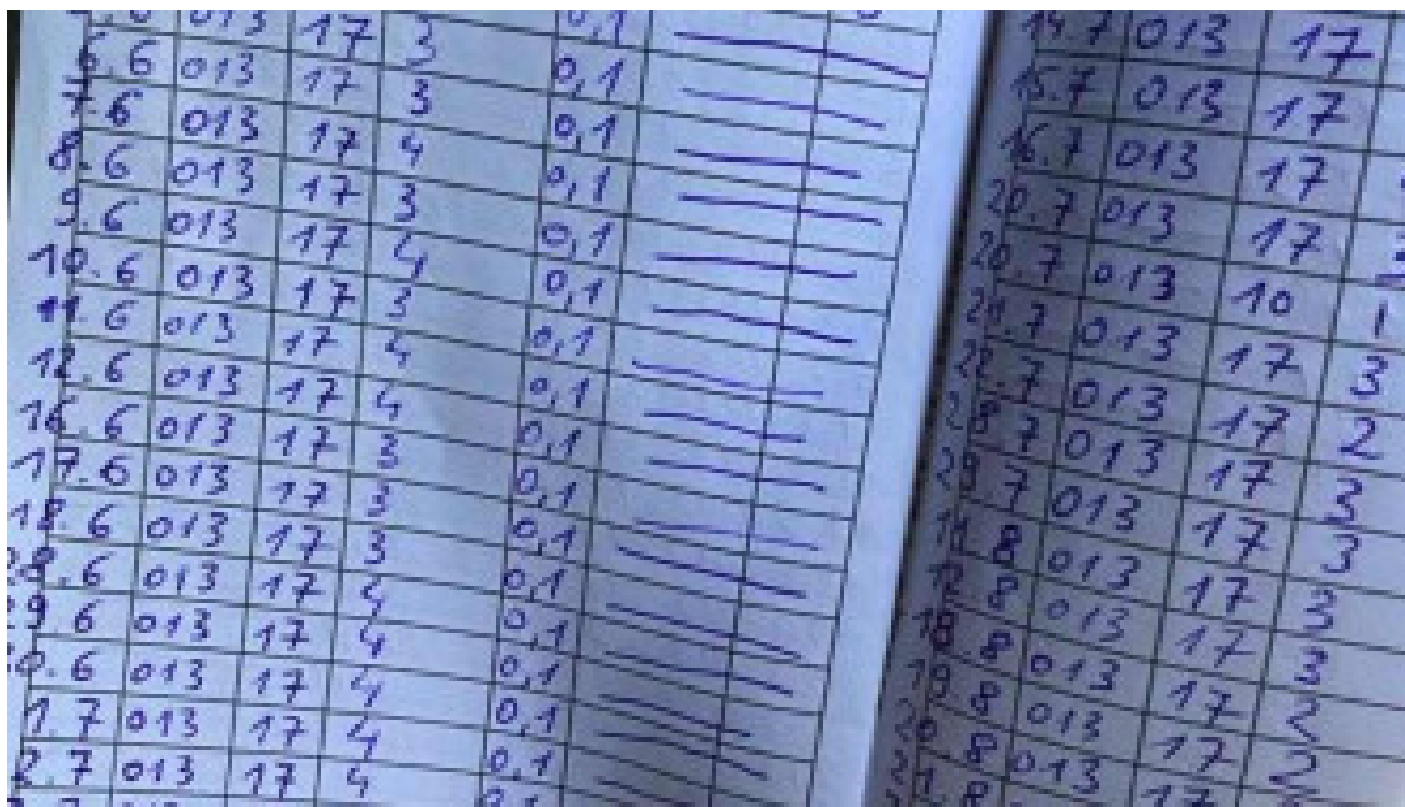 013 17 3 0,1
6.6 013 17 3 0,1
7.6 013 17 4 0,1
8.6 013 17 3 0,1
9.6 013 17 4 0,1
10.6 013 17 3 0,1
11.6 013 17 4 0,1
12.6 013 17 4 0,1
16.6 013 17 3 0,1
17.6 013 17 3 0,1
18.6 013 17 3 0,1
.6 013 17 4 0,1
29.6 013 17 4 0,1
0.6 013 17 4 0,1
1.7 013 17 4 0,1
2.7 013 17 4 0,1
14.7 013 17
15.7 013 17
16.7 013 17
20.7 013 17
20.7 013 10 1
21.7 013 17 3
22.7 013 17 2
28.7 013 17 3
29.7 013 17 3
11.8 013 17 3
12.8 013 17 3
18.8 013 17 2
19.8 013 17 2
20.8 013 17
21.8